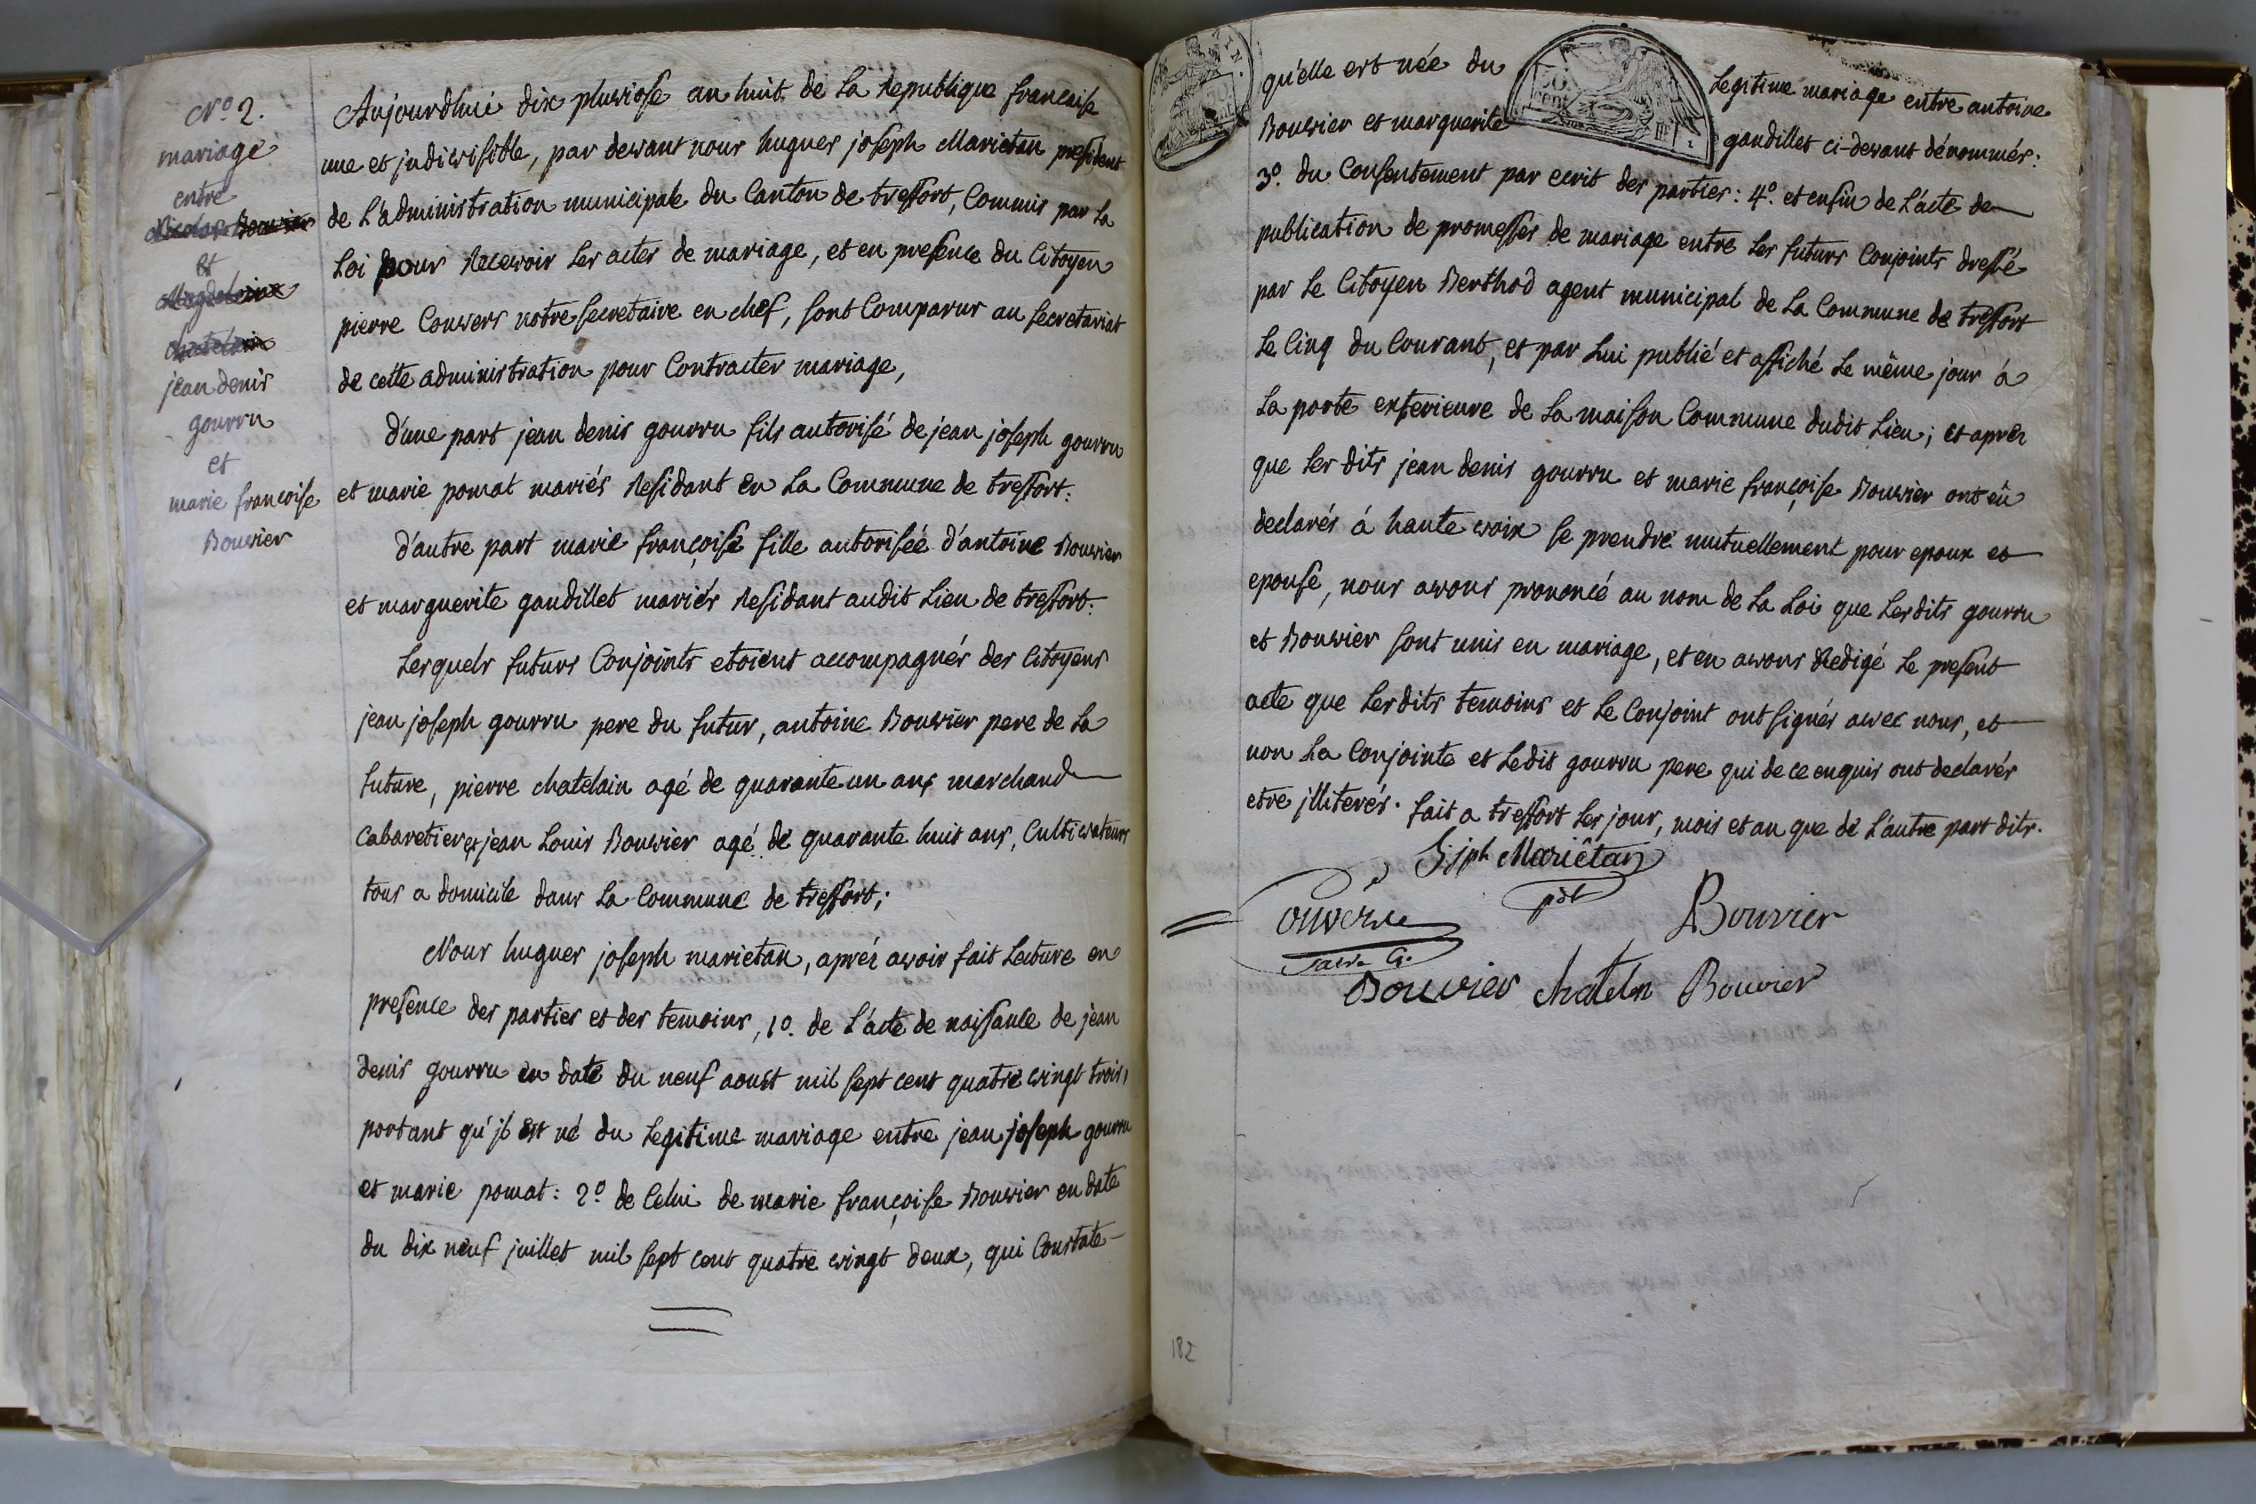 N.º 2.
mariage
entre
Nicolas Bouvier
et
Magdeleine
chatelain
jean denis
gourru
et
marie françoise
Bouvier
Aujourdhui dix pluviose an huit de La Republique francaise
une et jndivisible, par devant nous hugues joseph Marietan president
de L'administration municipale du Canton de treffort, Commis par La
Loi pour Recevoir Les actes de mariage, et en presence du Citoyen
pierre Convers notre secretaire en chef, sont Comparus au secretariat
de cette administration pour Contracter mariage,
d'une part jean denis gourru fils autorisé de jean joseph gourru
et marie pomat mariés Residant en La Commune de treffort:
d'autre part marie françoise fille autorisée d'antoine Bouvier
et marguerite gandillet mariés Residant audit Lieu de treffort:
Lesquels futurs Conjoints etoient accompagnés des Citoyens
jean joseph gourru pere du futur, antoine Bouvier pere de La
future, pierre chatelain agé de quarante un ans marchand
Cabaretier et jean Louis Bouvier agé de quarante huit ans, Cultivateurs
tous a domicile dans La Commune de treffort;
Nous hugues joseph marietan, aprés avoir fait Lecture en
presence des parties et des temoins, 1º. de L'acte de naissance de jean
denis gourru en date du neuf aoust mil sept cent quatre vingt trois,
portant qu'jl est né du Legitime mariage entre jean joseph gourru
et marie pomat: 2º de Celui de marie françoise Bouvier en date
du dix neuf juillet mil sept cent quatre vingt deux, qui Constate
qu'elle est née du Legitime mariage entre antoine
Bouvier et marguerite gandillet ci-devant dénommés:
3º. du Consentement par ecrit des parties: 4º. et enfin de L'acte de
publication de promesses de mariage entre Les futurs Conjoints dressé
par Le Citoyen Berthod agent municipal de La Commune de treffort
Le Cinq du Courant, et par Lui publié et affiché Le même jour á
La porte exterieure de La maison Commune dudit Lieu; et aprés
que Les dits jean denis gourru et marie françoise Bouvier ont eû
declarés á haute voix se prendre mutuellement pour epoux et
epouse, nous avons prononcé au nom de La Loi que Lesdits gourru
et Bouvier sont unis en mariage, et en avons Redigé Le present
acte que Lesdits temoins et Le Conjoint ont signés avec nous, et
non La Conjointe et Ledit gourru pere qui de ce enquis ont declarés
etre jlliterés. fait a treffort Les jour, mois et an que de L'autre part dits.
jph Mariétan
pdt
Bouvier
Bouvier chateln Bouvier
182